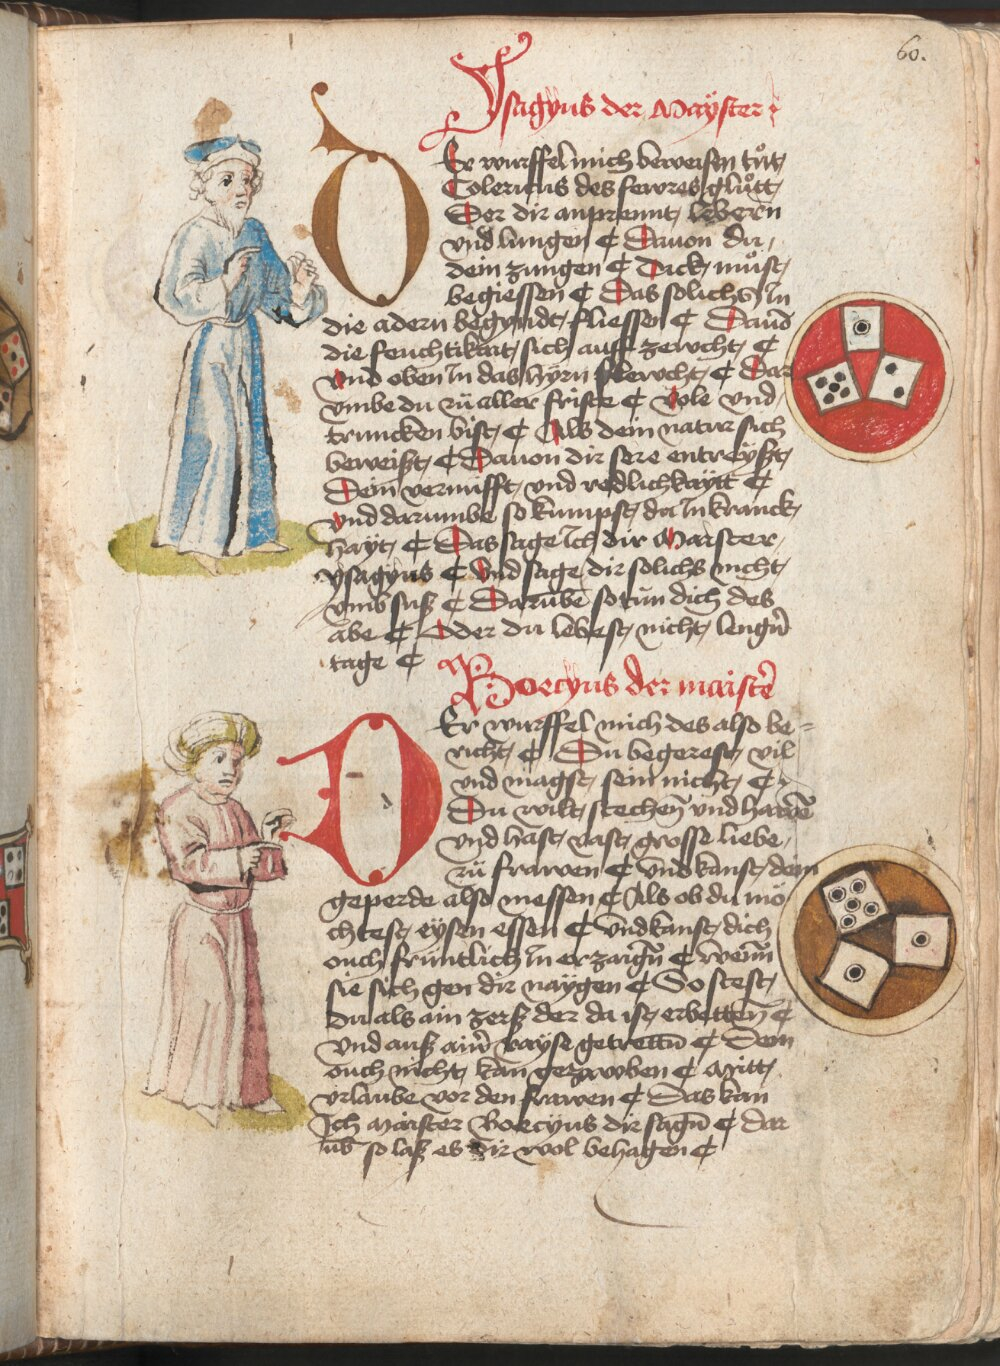 60.
Ysagyus der Mayster
DEr wurffel mich beweisen tůt
Colericus des fewres glůtt
Der dir anprennt lebern
vnd lungen ¢ Dauon du
dein zungen ¢ Dick můst
begiessen ¢ Das solichs In
die adern begyndt fliessen ¢ Dauō
die feuchtikait sich auff zewcht ¢
Vnd oben In das hyrn flewcht ¢ Dar
vmbe du zü aller friste ¢ Vole vnd
truncken bist ¢ Als dein natur sich
beweißt ¢ Dauon dir sere entreyßt
Dein vernufft vnd redlichkaytt ¢
vnd darumbe so kumpst du In kranck
hayt ¢ Das sage Ich dir Maister
ysagyus ¢ Vnd sage dir solichs nicht
vmb suß ¢ Darumbe so tün dich des
abe ¢ Oder du lebest nicht lengn̄
tage ¢
Boecyus der maistē
DEr wurffel mich des also be=
richt ¢ Du begerest vil
vnd magst sein nicht ¢
Du wilt stechen vnd hawē
vnd hast vast grosse liebe
zü frawen ¢ Vnd kanst dein
geperde also messen ¢ Als ob du mö
chtest eysen essen ¢ Vnd kanst dich
ouch früntlich In erzaigñ ¢ Wenn
sie sich gen dir naygen ¢ So stest
du als ain zerß der da ist erbetten ¢
Vnd auß ainr̄ rayse getrettñ ¢ Dem
ouch nicht kan gezwoben ¢ Mitt
vrlaube vor den frawen ¢ Das kan
Ich Maister Boecyus dir sagñ ¢ dar
üb so laß es dir wol behagen ¢